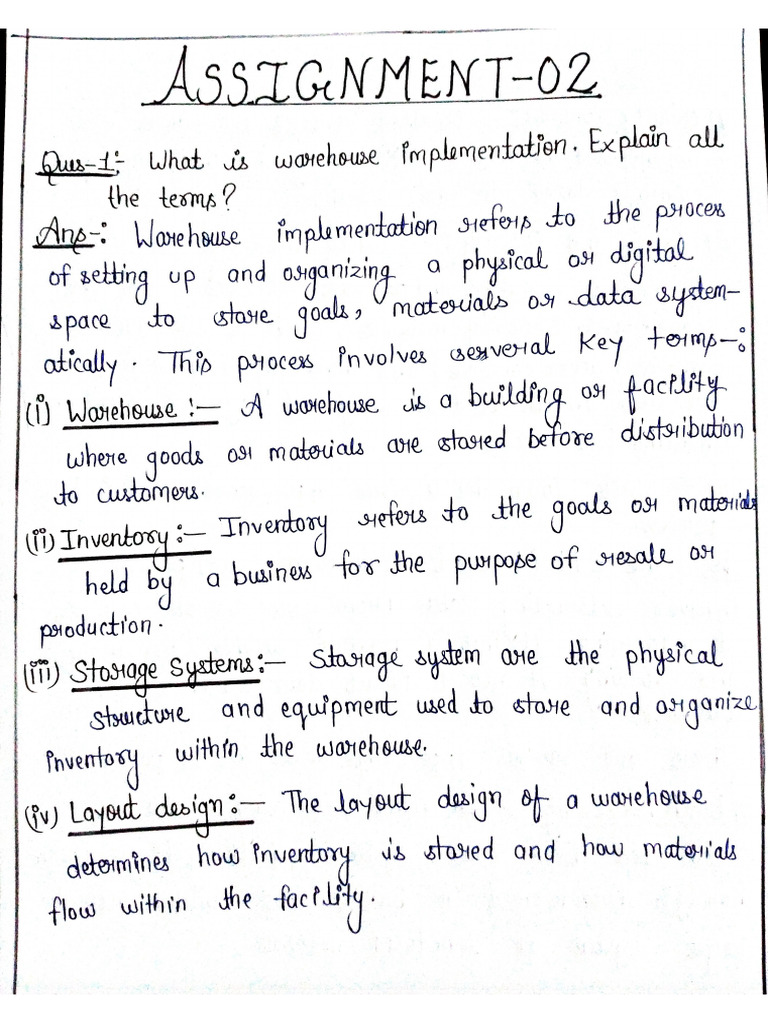 ASSIGNMENT-02
Ques-1:- What is warehouse implementation. Explain all
the terms?
Ans-: Warehouse implementation refers to the process
of setting up and organizing a physical or digital
space to store goals, materials or data system-
atically. This process involves serveral key terms-:
(i) Warehouse :- A warehouse is a building or facility
where goods or materials are stored before distribution
to customers.
(ii) Inventory :- Inventory refers to the goals or materials
held by a business for the purpose of resale or
production.
(iii) Storage Systems:- Storage system are the physical
structure and equipment used to store and organize
inventory within the warehouse.
(iv) Layout design:- The layout design of a warehouse
determines how inventory is stored and how materials
flow within the facility.